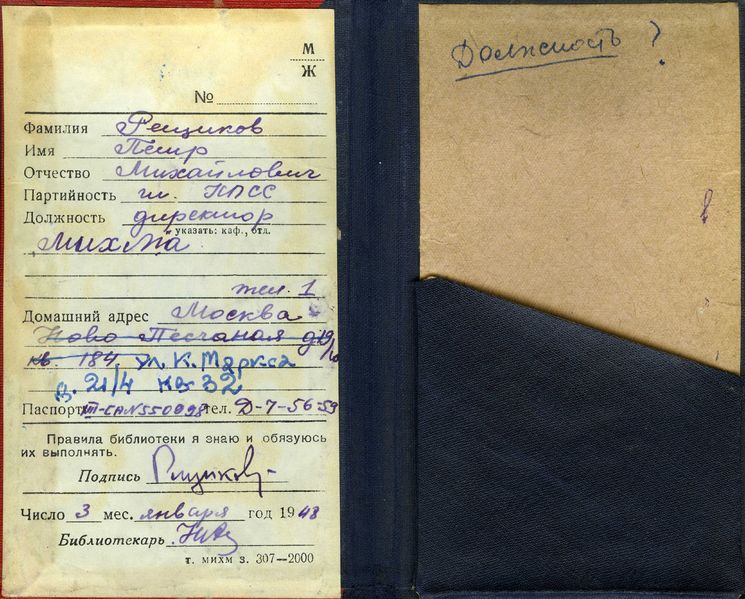 М
Ж
№
Фамилия Рещиков
Имя Пётр
Отчество Михайлович
Партийность чл. КПСС
Должность директор
указать: каф., отд.
МИХМа
тел. 1
Домашний адрес Москва
Ново Песчаная д 19/10
кв. 184. ул. К. Маркса
д. 21/4 кв 32
Паспорт III-СА N 550098 тел. Д-7-56-59
Правила библиотеки я знаю и обязуюсь
их выполнять.
Подпись Рещиков
Число 3 мес. января год 1948
Библиотекарь
т. михм з. 307—2000
Должность ?